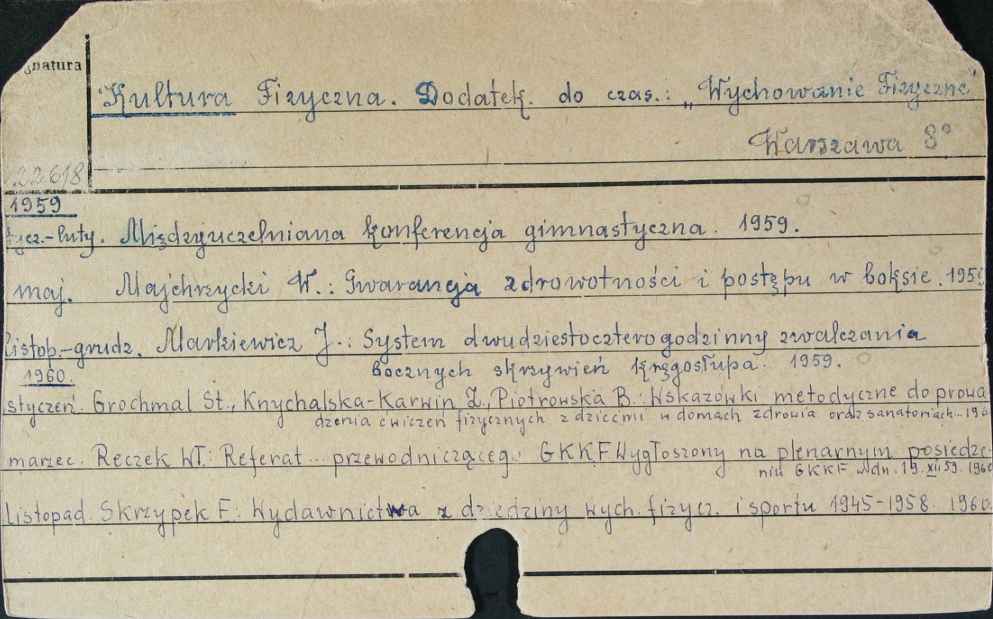 gnatura
Kultura Fizyczna. Dodatek. do czas.: „Wychowanie Fizyczne"
Warszawa 8°
22618
1959
tycz.-luty. Międzyuczelniana konferencja gimnastyczna. 1959.
maj. Majchrzycki W.: Gwarancja zdrowotności i postępu w boksie. 1959
Listop.-grudz. Markiewicz J.: System dwudziestoczterogodzinny zwalczania
bocznych skrzywień kręgosłupa. 1959.
1960.
styczeń. Grochmal St., Knychalska-Karwin Z., Piotrowska B.: Wskazówki metodyczne do prowa
dzenia ćwiczeń fizycznych z dziećmi w domach zdrowia oraz sanatoriach. 196
marzec. Reczek Wł: Referat przewodnicząceg. GKKF wygłoszony na plenarnym posiedze-
niu GKKF w dn. 19.XII 59. 1960
listopad. Skrzypek F: Wydawnictwa z dziedziny wych. fizycz. i sportu 1945-1958. 1960.